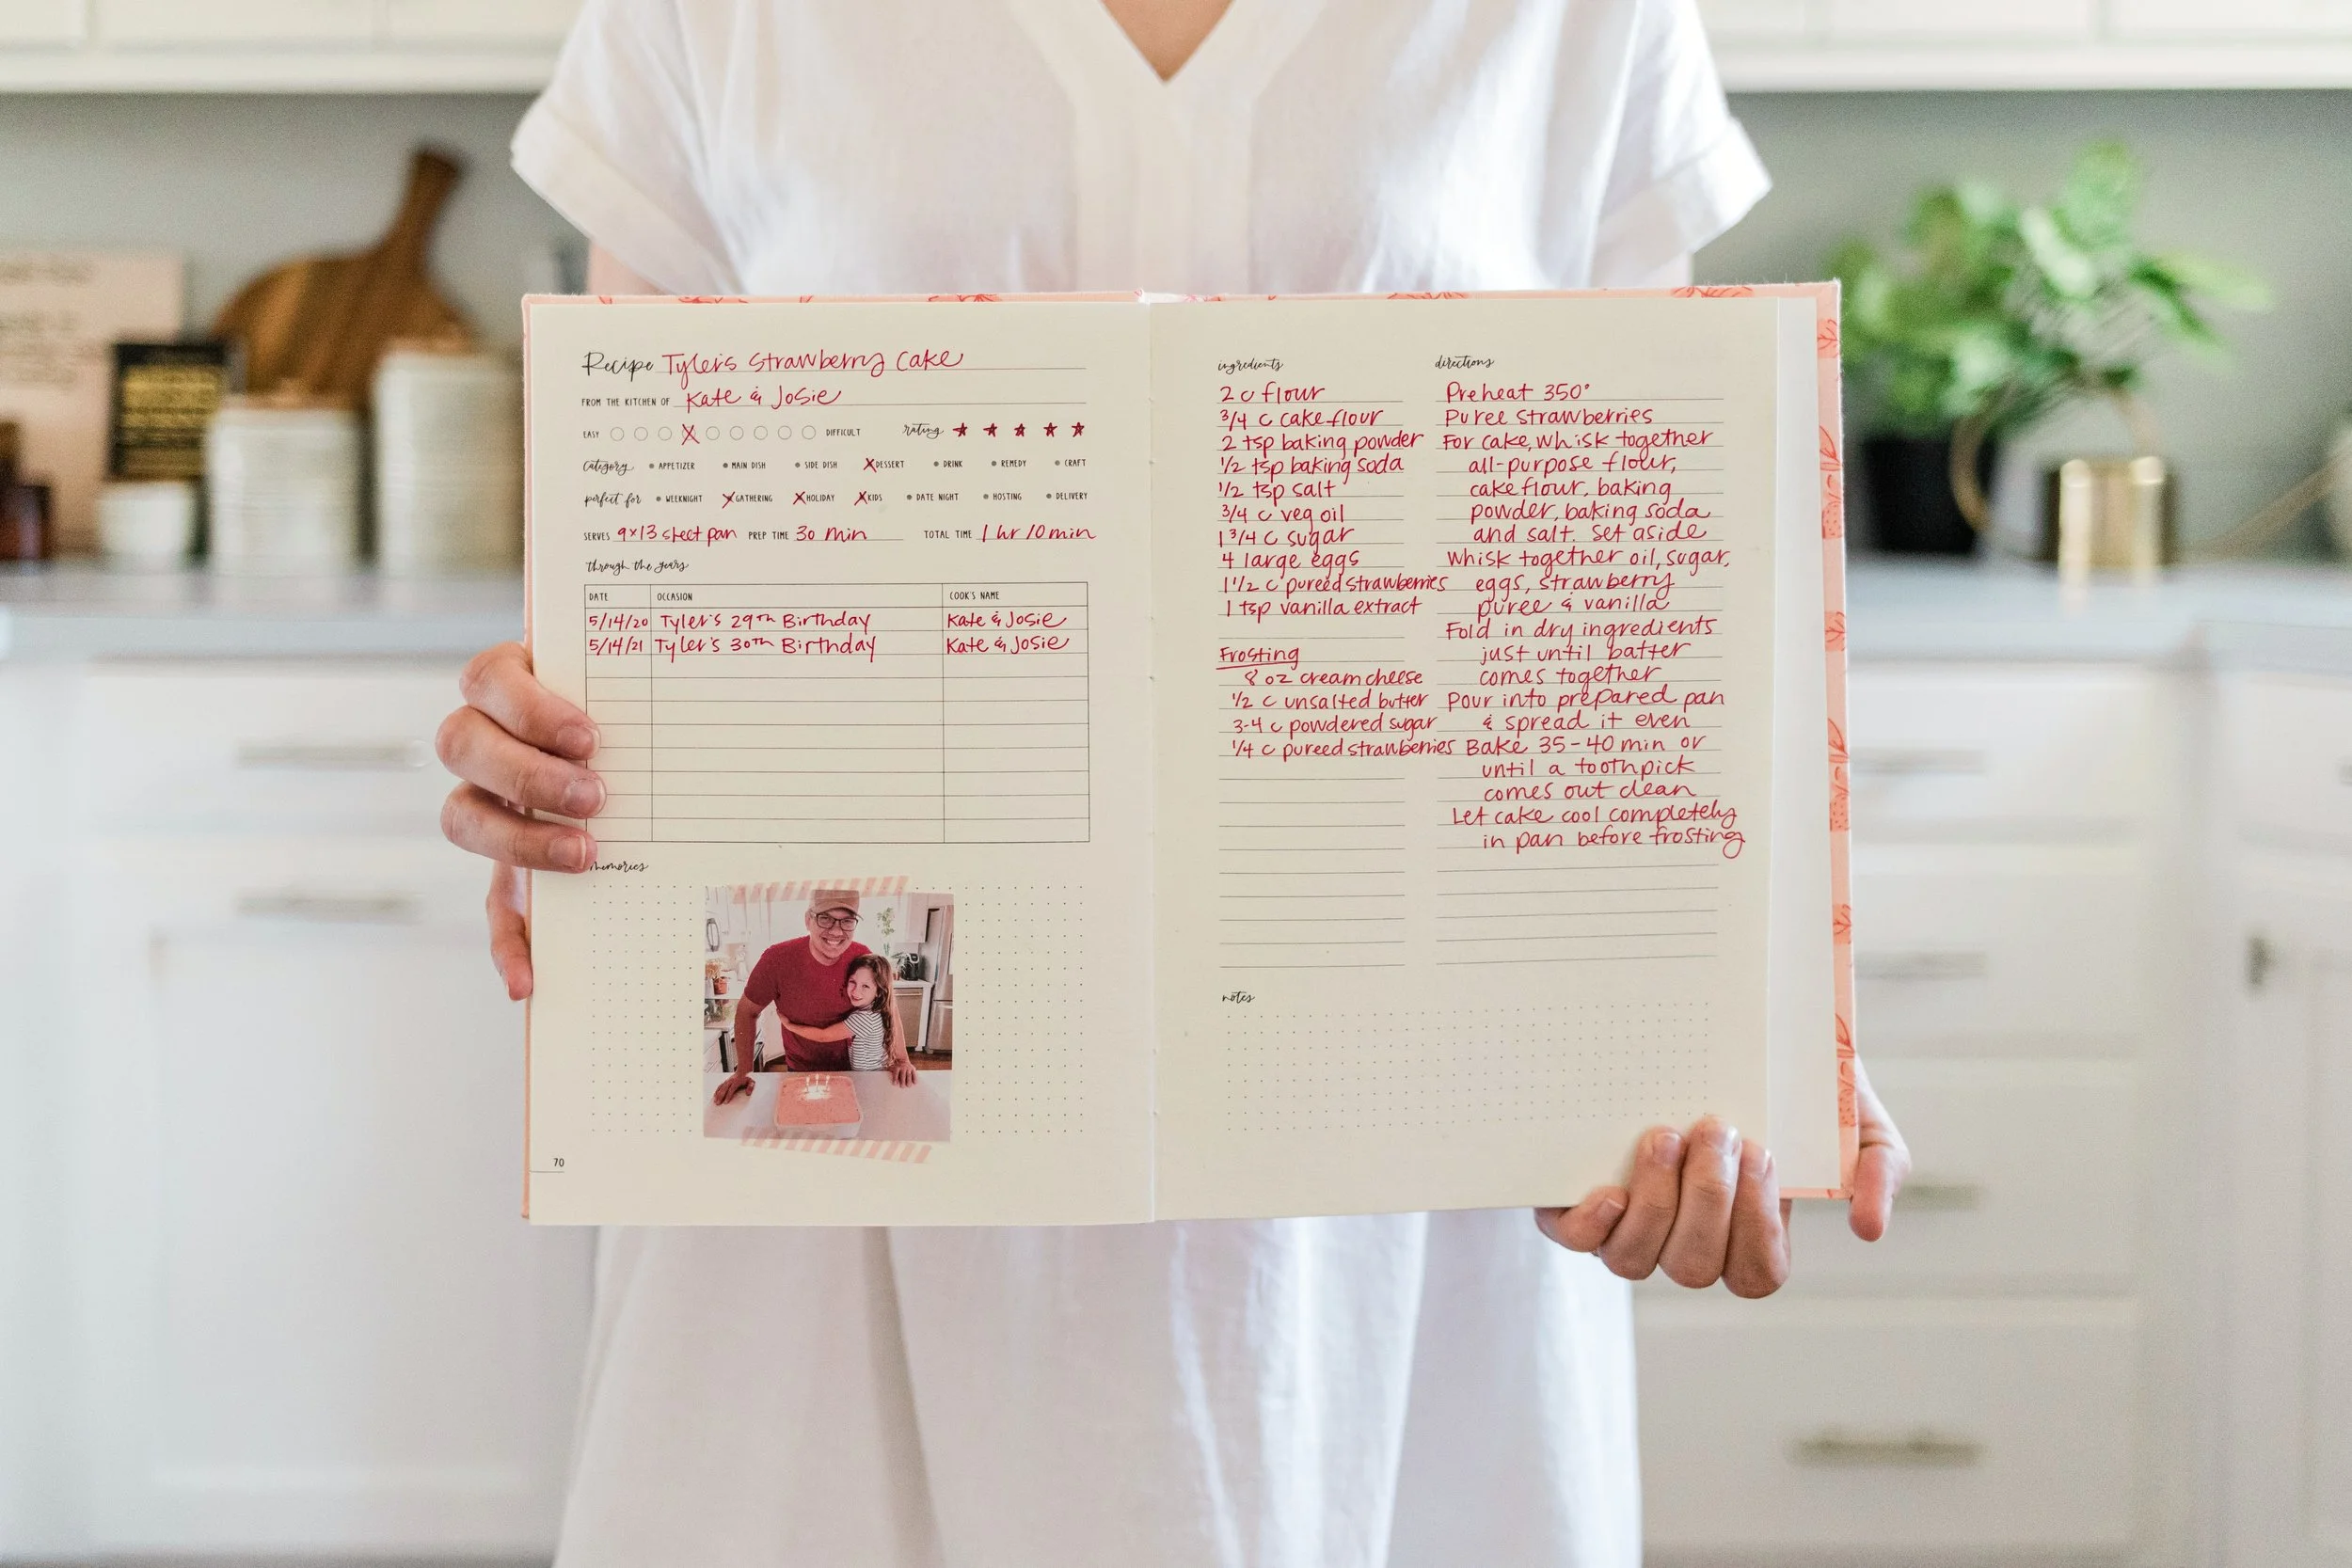 Recipe Tyler's Strawberry Cake
FROM THE KITCHEN OF Kate & Josie
EASY DIFFICULT rating
Category APPETIZER MAIN DISH SIDE DISH DESSERT DRINK REMEDY CRAFT
perfect for WEEKNIGHT GATHERING HOLIDAY KIDS DATE NIGHT HOSTING DELIVERY
SERVES 9x13 sheet pan PREP TIME 30 min TOTAL TIME 1 hr 10 min
through the years
DATE OCCASION COOK'S NAME
5/14/20 Tyler's 29th Birthday Kate & Josie
5/14/21 Tyler's 30th Birthday Kate & Josie
memories
70
ingredients
2 c flour
3/4 c cake flour
2 tsp baking powder
1/2 tsp baking soda
1/2 tsp salt
3/4 c veg oil
1 3/4 c sugar
4 large eggs
1 1/2 c pureed strawberries
1 tsp vanilla extract
Frosting
8 oz cream cheese
1/2 c unsalted butter
3-4 c powdered sugar
1/4 c pureed strawberries
directions
Preheat 350°
Puree strawberries
For cake, whisk together
all-purpose flour,
cake flour, baking
powder, baking soda
and salt. set aside
Whisk together oil, sugar,
eggs, strawberry
puree & vanilla
Fold in dry ingredients
just until batter
comes together
Pour into prepared pan
& spread it even
Bake 35-40 min or
until a toothpick
comes out clean
Let cake cool completely
in pan before frosting
notes